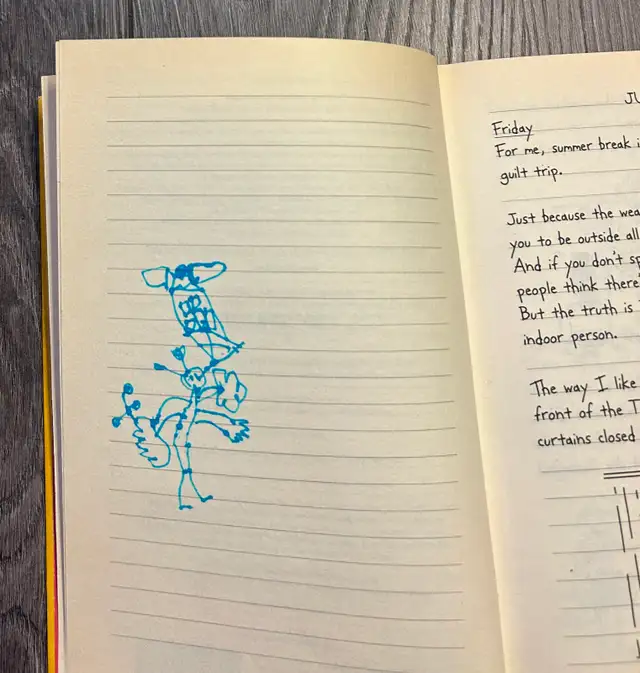 JU
Friday
For me, summer break i
guilt trip.
Just because the wea
you to be outside all
And if you don't sp
people think there'
But the truth is
indoor person.
The way I like
front of the T
curtains closed